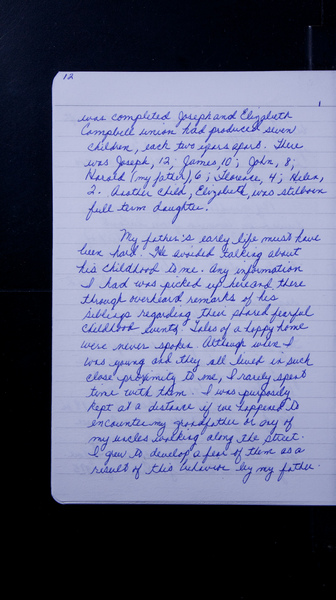 12
was completed Joseph and Elizabeth
Campbell union had produced seven
children, each two years apart. There
was Joseph, 12; James, 10; John, 8;
Harold (my father), 6; Florence, 4; Helen,
2. Another child, Elizabeth, was stillborn
full term daughter.
My father's early life must have
been hard. He avoided talking about
his childhood to me. Any information
I had was picked up here and there
through overheard remarks of his
siblings regarding their shared fearful
childhood events. Tales of a happy home
were never spoken. Although when I
was young and they all lived in such
close proximity to me, I rarely spent
time with them. I was purposely
kept at a distance if we happened to
encounter my grandfather or any of
my uncles walking along the street.
I grew to develop a fear of them as a
result of this behavior by my father.